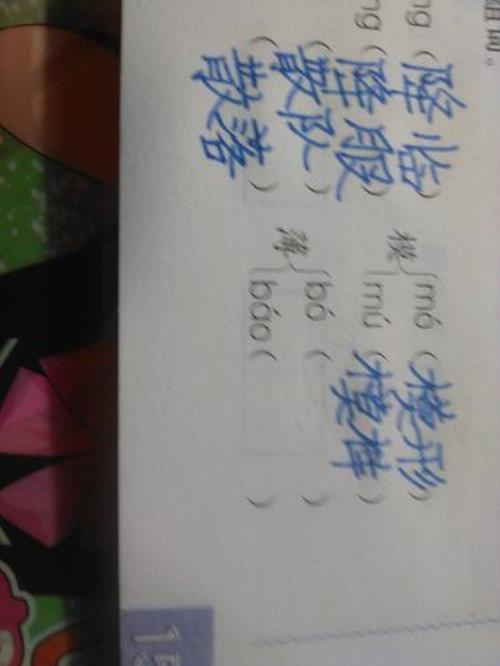 ng(降临) 模 mó(模形)
ng(降服) mú(模样)
(散队) 薄 bó( )
(散落) báo( )